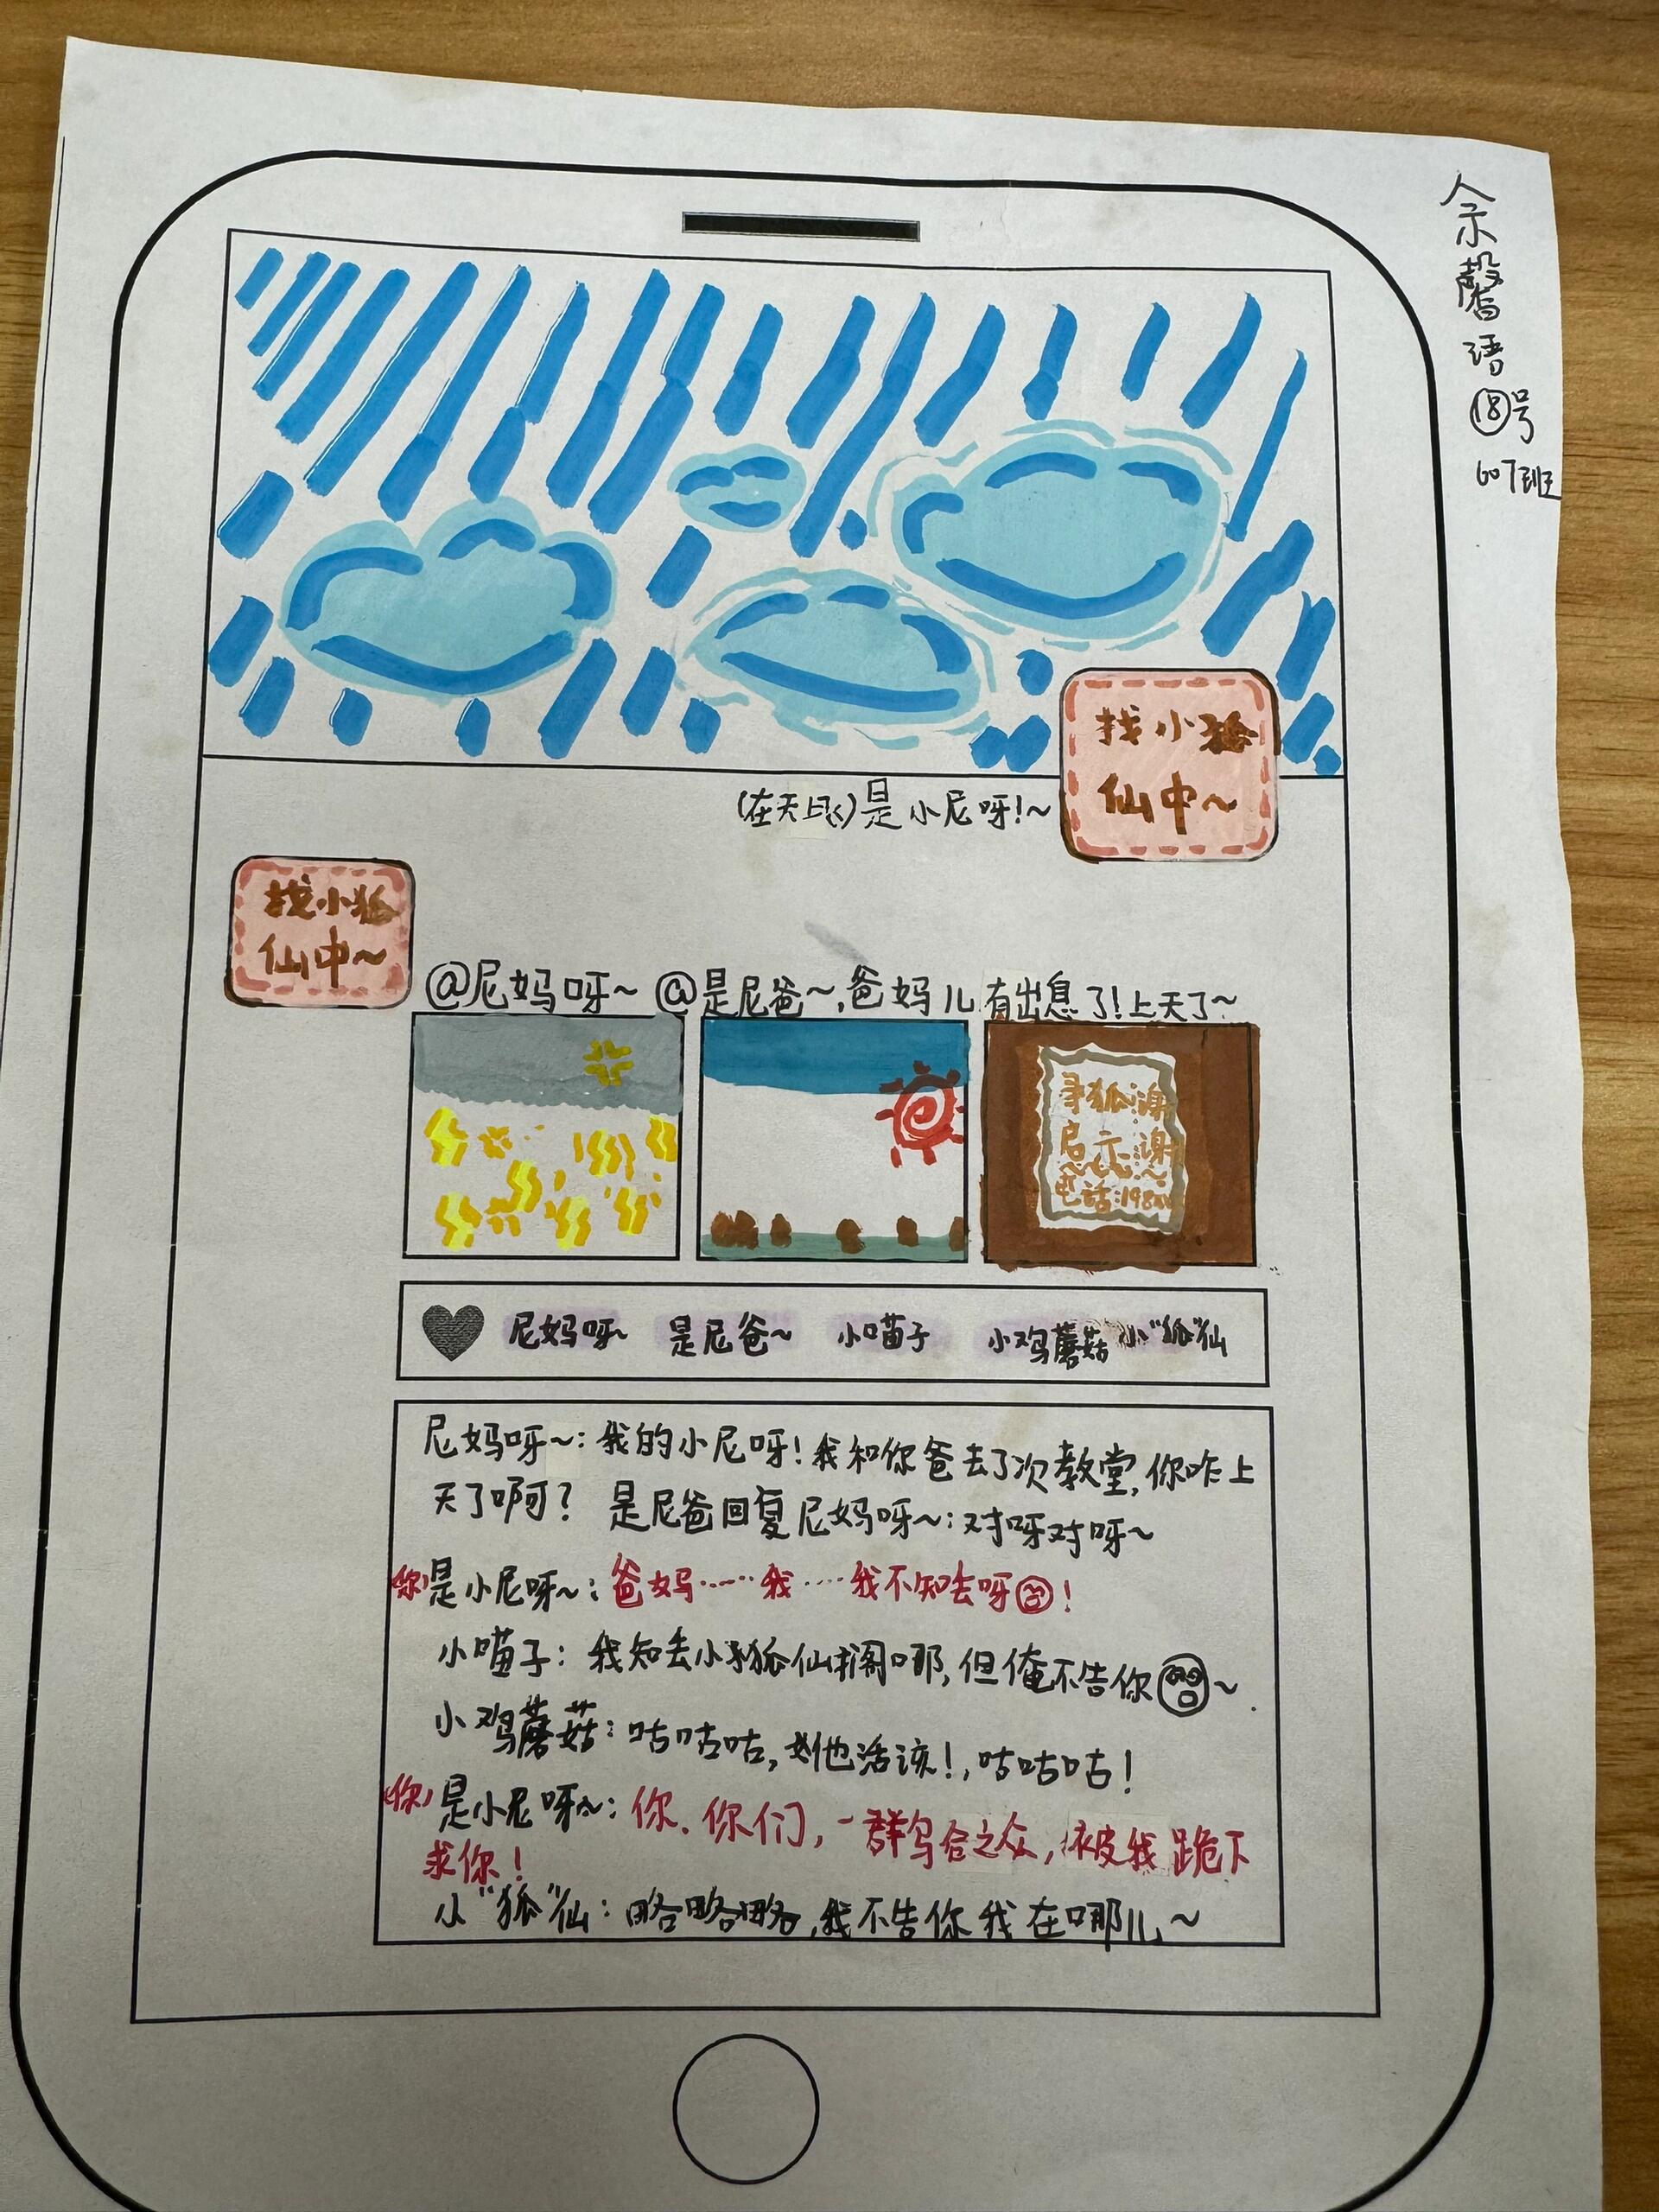 余馨语
⑱号
607班
找小狐
仙中~
(在天上飞)是小尼呀!~
找小狐
仙中~
@尼妈呀~ @是尼爸~,爸妈儿有出息了!上天了~
寻狐谢
启示谢
电话:198
尼妈呀~ 是尼爸~ 小喵子 小鸡蘑菇 小“狐”仙
尼妈呀~:我的小尼呀!我和你爸去了次教堂,你咋上
天了啊? 是尼爸回复尼妈呀~:对呀对呀~
(你)是小尼呀~:爸妈……我……我不知去呀!
小喵子:我知去小狐仙搁哪,但俺不告你~
小鸡蘑菇:咕咕咕,他活该!,咕咕咕!
(你)是小尼呀~:你、你们,一群乌合之众,被我跪下
求你!
小“狐”仙:略略略,我不告你我在哪儿~